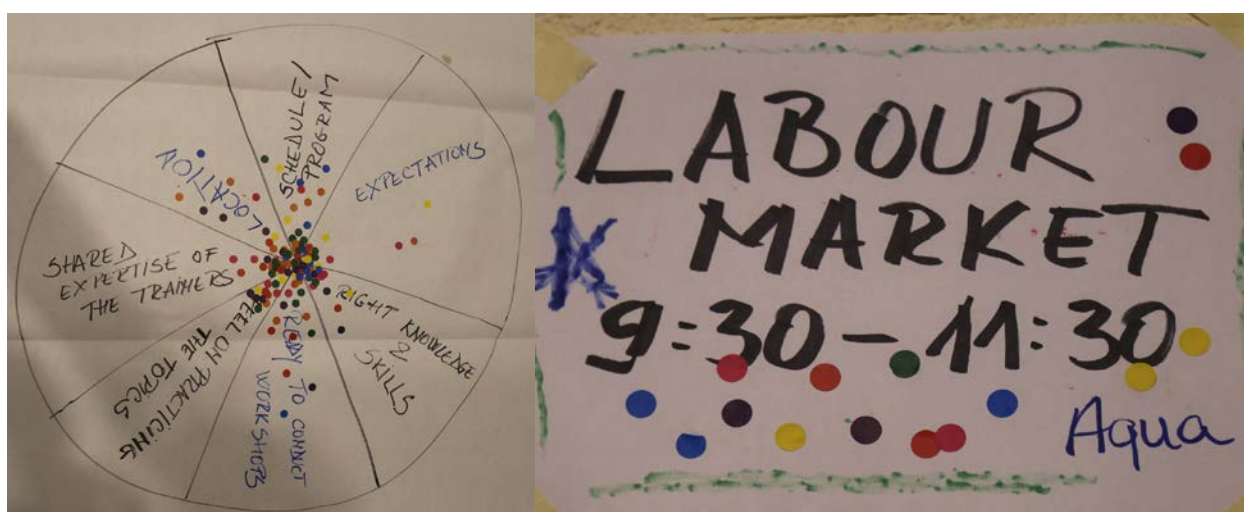 SCHEDULE /
PROGRAM
EXPECTATIONS
RIGHT KNOWLEDGE
&
SKILLS
TO CONDUCT
WORKSHOPS
ON PRACTICING
THE TOPICS
SHARED
EXPERTISE OF
THE TRAINERS
LOCATION
LABOUR
MARKET
9:30-11:30
Aqua